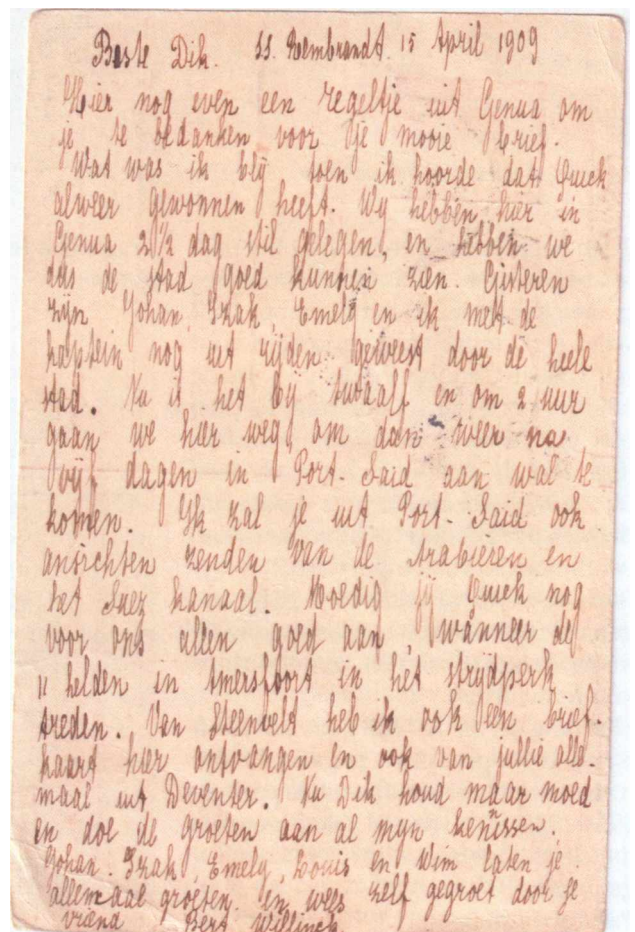 Beste Dik. ss. Rembrandt. 15 April 1909
Hier nog even een regeltje uit Genua om
je te bedanken voor je mooie brief.
Wat was ik blij toen ik hoorde dat Quick
alweer gewonnen heeft. Wij hebben hier in
Genua 2 1/2 dag stil gelegen, en hebben we
dus de stad goed kunnen zien. Gisteren
zijn Johan, Izak, Emely en ik met de
kaptein nog uit rijden geweest door de heele
stad. Nu is het bij twaalf en om 2 uur
gaan we hier weg, om dan weer na
vijf dagen in Port-Said aan wal te
komen. Ik zal je uit Port-Said ook
ansichten zenden van de Arabieren en
het Suez kanaal. Moedig jij Quick nog
voor ons allen goed aan, wanneer de
11 helden in Amersfoort in het strijdperk
treden. Van Steenbelt heb ik ook een brief-
kaart hier ontvangen en ook van jullie alle-
maal uit Deventer. Nu Dik houd maar moed
en doe de groeten aan al mijn kennissen.
Johan, Izak, Emely, Louis en Wim laten je
allemaal groeten en wees zelf gegroet door je
vriend Bert Willinck.